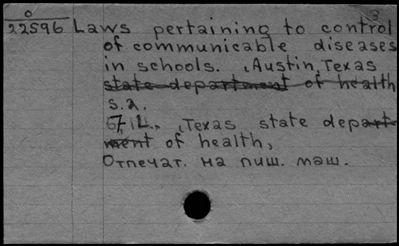 O
22596 Laws pertaining to control
of communicable diseases
in schools. Austin, Texas
state department of health
s.a.
7 l., Texas state depart-
ment of health,
Отпечат. на пиш. маш.